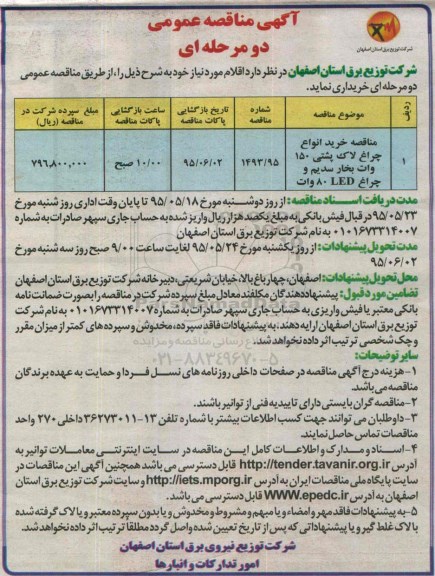 آگهی مناقصه عمومی
دو مرحله ای
شرکت توزیع برق استان اصفهان
شرکت توزیع برق استان اصفهان در نظر دارد اقلام مورد نیاز خود به شرح ذیل را، از طریق مناقصه عمومی
دو مرحله ای خریداری نماید.
ردیف
موضوع مناقصه
شماره مناقصه
تاریخ بازگشایی پاکات مناقصه
ساعت بازگشایی پاکات مناقصه
مبلغ سپرده شرکت در مناقصه (ریال)
۱
مناقصه خرید انواع
چراغ لاک پشتی ۱۵۰
وات بخار سدیم و
چراغ LED ۸۰ وات
۱۴۹۳/۹۵
۹۵/۰۶/۰۲
۱۰/۰۰ صبح
۷۹۶,۸۰۰,۰۰۰
مدت دریافت اسناد مناقصه: از روز دوشنبه مورخ ۹۵/۰۵/۱۸ تا پایان وقت اداری روز شنبه مورخ
۹۵/۰۵/۲۳ در قبال فیش بانکی به مبلغ یکصد هزار ریال واریز شده به حساب جاری سپهر صادرات به شماره
۰۱۰۱۶۷۳۳۱۴۰۰۷ به نام شرکت توزیع برق استان اصفهان
مدت تحویل پیشنهادات: از روز یکشنبه مورخ ۹۵/۰۵/۲۴ لغایت ساعت ۹/۰۰ صبح روز سه شنبه مورخ
۹۵/۰۶/۰۲
محل تحویل پیشنهادات: اصفهان، چهارباغ بالا، خیابان شریعتی، دبیرخانه شرکت توزیع برق استان اصفهان
تضامین مورد قبول: پیشنهاددهندگان مکلفند معادل مبلغ سپرده شرکت در مناقصه را بصورت ضمانت نامه
بانکی معتبر یا فیش واریزی به حساب جاری سپهر صادرات به شماره ۰۱۰۱۶۷۳۳۱۴۰۰۷ به نام شرکت
توزیع برق استان اصفهان ارایه دهند. به پیشنهادات فاقد سپرده، مخدوش و سپرده های کمتر از میزان مقرر
و چک شخصی ترتیب اثر داده نخواهد شد.
سایر توضیحات:
۱- هزینه درج آگهی مناقصه در صفحات داخلی روزنامه های نسل فردا و حمایت به عهده برندگان
مناقصه می باشد.
۲- مناقصه گران بایستی دارای تاییدیه فنی از توانیر باشند.
۳- داوطلبان می توانند جهت کسب اطلاعات بیشتر با شماره تلفن ۱۳-۳۶۲۷۳۰۱۱ داخلی ۲۷۰ واحد
مناقصات تماس حاصل نمایند.
۴- اسناد و مدارک و اطلاعات کامل این مناقصه در سایت اینترنتی معاملات توانیر به
آدرس http://tender.tavanir.org.ir قابل دسترسی می باشد همچنین آگهی این مناقصات در
سایت پایگاه ملی مناقصات ایران به آدرس http://iets.mporg.ir و سایت شرکت توزیع برق استان
اصفهان به آدرس WWW.epedc.ir قابل دسترسی می باشد.
۵- به پیشنهادات فاقد مهر و امضاء و یا مبهم و مشروط و مخدوش و یا بدون سپرده معتبر و یا لاک گرفته شده
با لاک غلط گیر و یا پیشنهاداتی که پس از تاریخ تعیین شده واصل گردد مطلقا ترتیب اثر داده نخواهد شد.
شرکت توزیع نیروی برق استان اصفهان
امور تدارکات و انبارها
۰۲۱-۸۸۳۴۹۶۷۰-۵